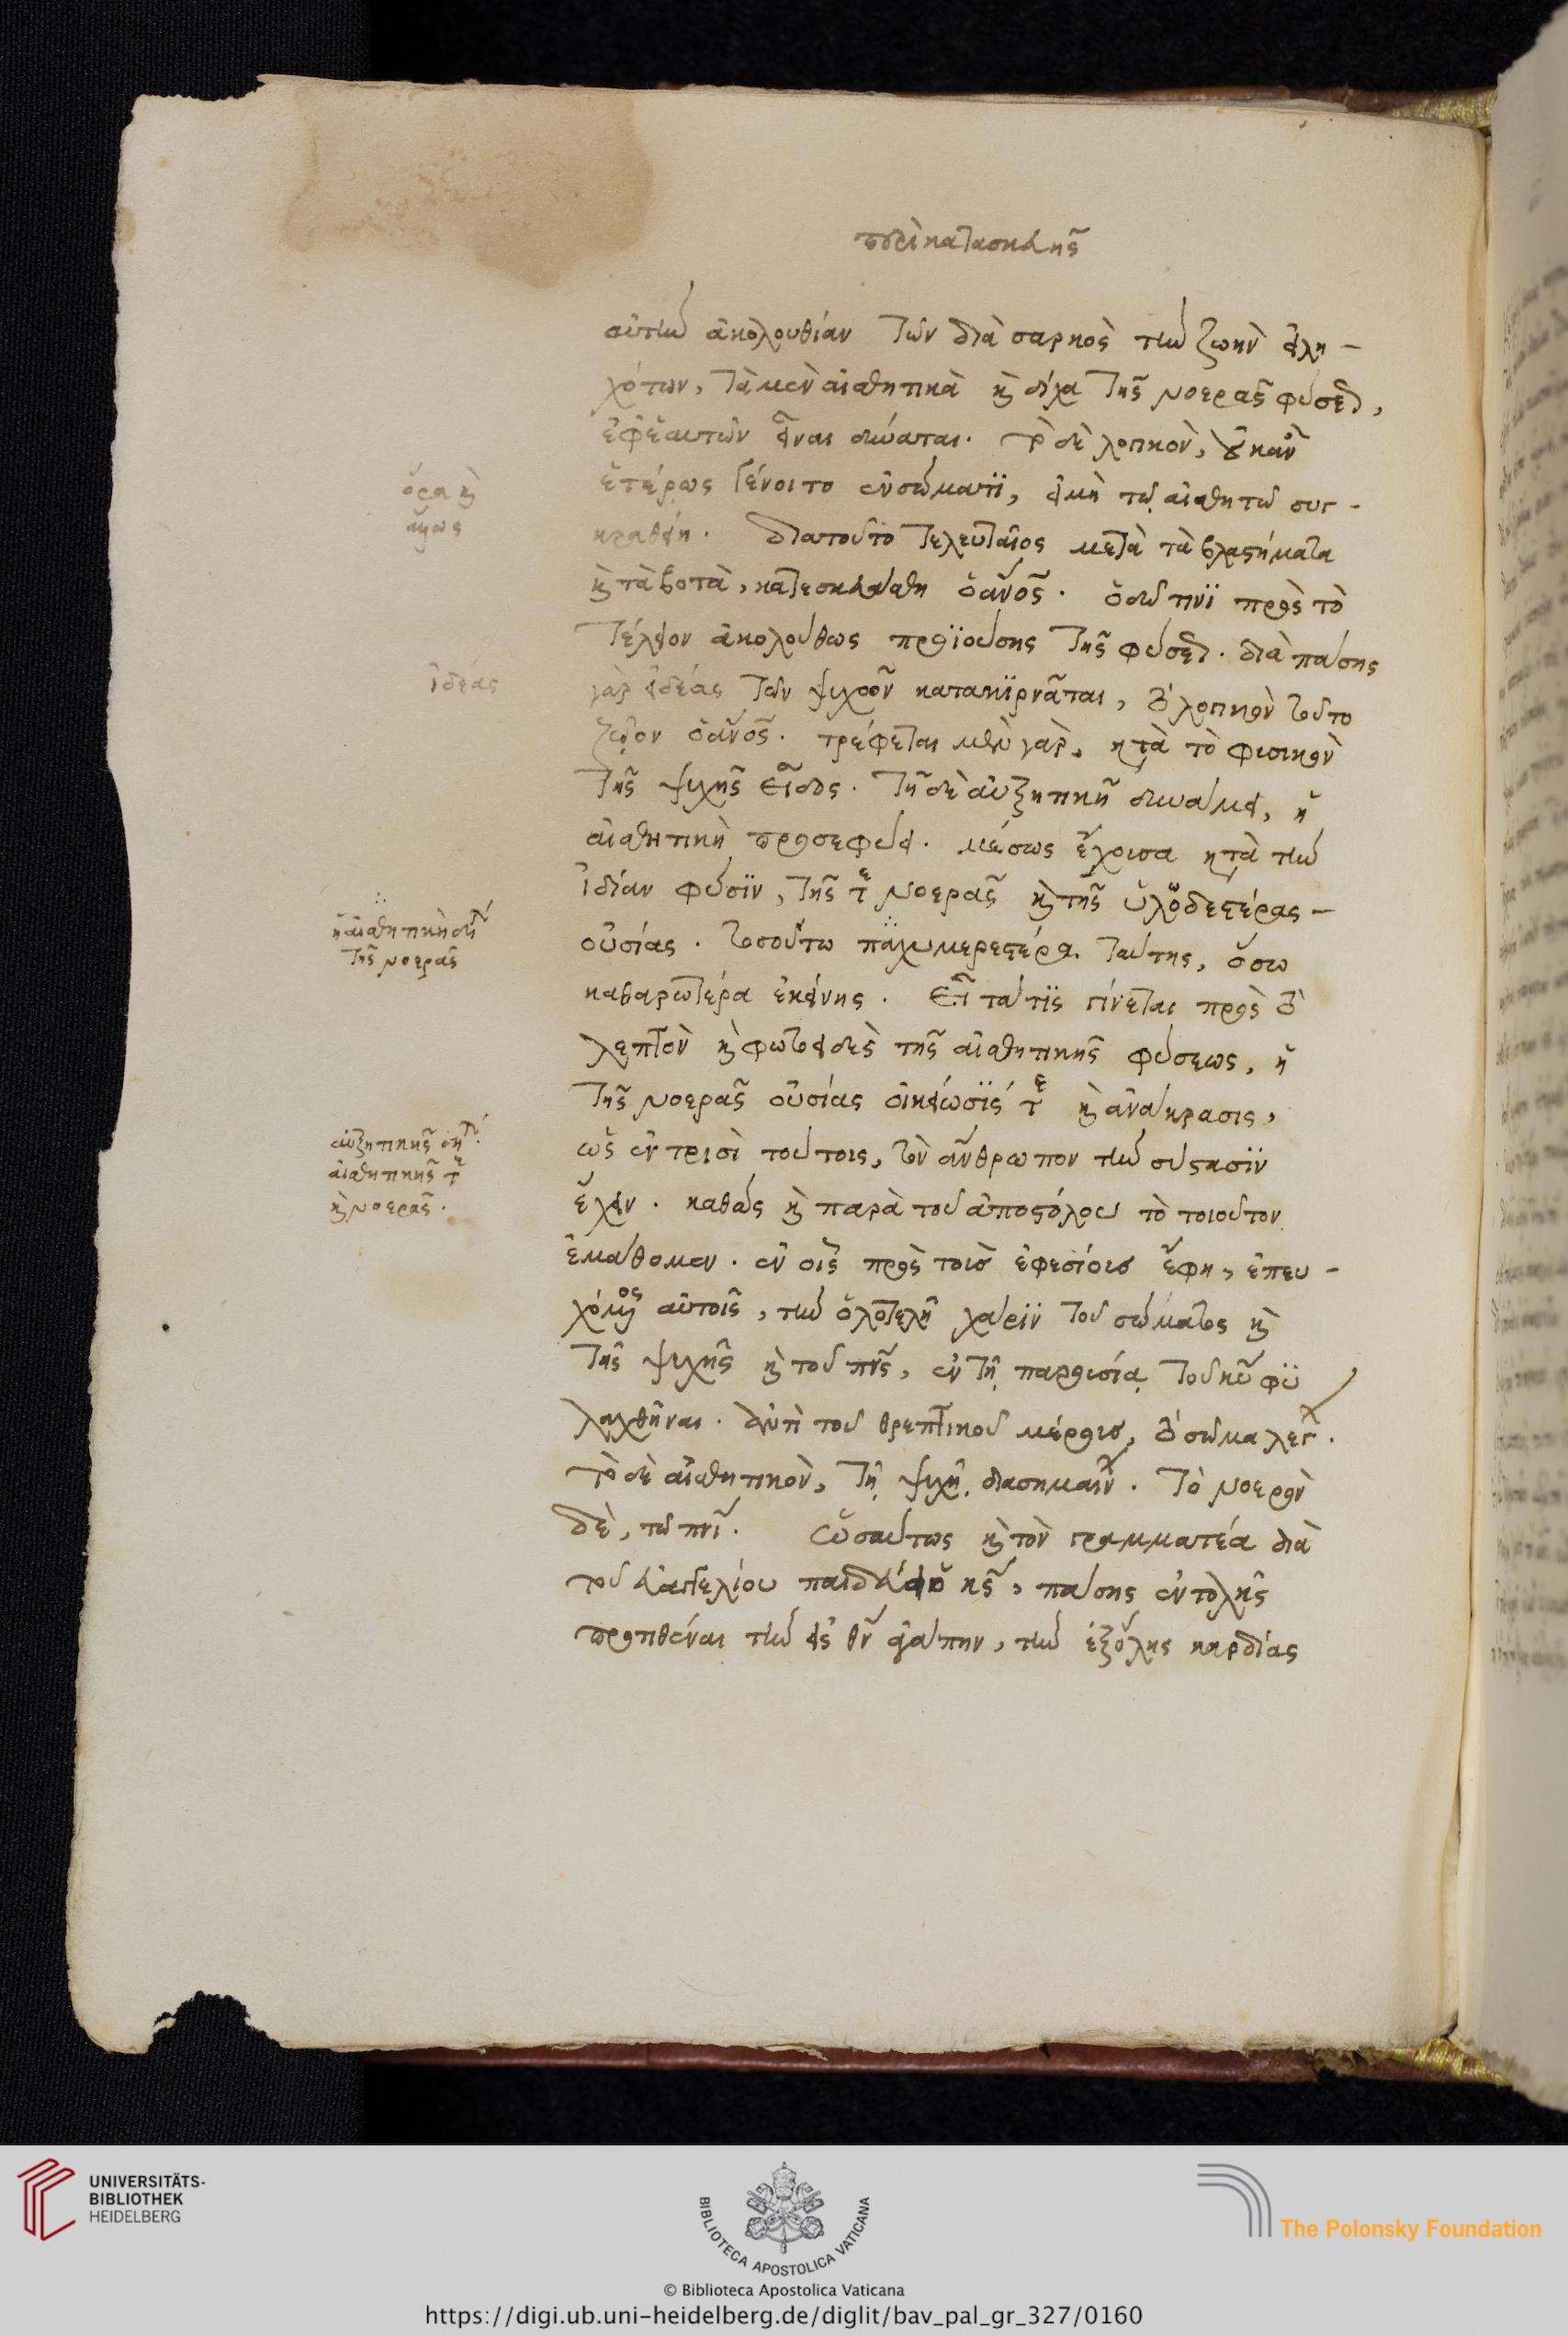 περὶ κατασκευῆς
αὐτὴν ἀκολουθίαν τῶν διὰ σαρκὸς τὴν ζωὴν εἰλη-
χότων, τὰ μὲν αἰσθητικὰ κ δίχα τῆς νοερᾶς φύσεως,
ἐφἑαυτῶν εἶναι δύναται. τὸ δὲ λογικὸν, οὐκ ἂν
ὅρα κ
ἑτέρως γένοιτο ἐν σώματϊ, εἰ μὴ τῷ αἰσθητῷ συγ-
ἄλλως
κραθείη. διατοῦτο τελευταῖος μετὰ τὰ βλαστήματα
κ τὰ βοτὰ, κατεσκευάσθη ὁ ἄνος. ὁδῷ τινϊ πρὸς τὸ
τέλειον ἀκολούθως προϊούσης τῆς φύσεως. διὰ πάσης
ἰδέας
γὰρ εἰδέας τῶν ψυχῶν κατακϊρνᾶται, τὸ λογικὸν τοῦτο
ζῷον ὁ ἄνος. τρέφεται μὲν γὰρ, κατὰ τὸ φυσικὸν
τῆς ψυχῆς εἶδος. τῇ δὲ αὐξητικῇ δυνάμει, ἡ
αἰσθητικὴ προσεφύει. μέσως ἔχουσα κατὰ τὴν
ἰδίαν φύσϊν, τῆς τε νοερᾶς κ τῆς ὑλωδεστέρας
ἡ αἰσθητικὴ δηλ
τῆς νοερᾶς
οὐσίας. τοσούτω παχυμερεστέρα ταύτης, ὅσω
καθαρωτέρα ἐκείνης. εἶτα τάυτϊς γίνεται πρὸς τὸ
λεπτὸν κ φωτοειδὲς τῆς αἰσθητικῆς φύσεως, ἡ
τῆς νοερᾶς οὐσίας οἰκείωσϊς τε κ ἀνάκρασις,
αὐξητικῆς δηλ
αἰσθητικῆς τε
κ νοερᾶς.
ὡς ἐν τρισὶ τούτοις, τὸν ἄνθρωπον τὴν σύστασϊν
ἔχειν. καθὼς κ παρὰ τοῦ ἀποστόλου τὸ τοιοῦτον
ἐμάθομεν. ἐν οἷς πρὸς τοὺς ἐφεσίους ἔφη, ἐπευ-
χόμενος αὐτοῖς, τὴν ὁλοτελῆ χάρϊν τοῦ σώματος κ
τῆς ψυχῆς κ τοῦ πνς, ἐν τῇ παρουσίᾳ τοῦ κυ φυ
λαχθῆναι. ἀντὶ τοῦ θρεπτικοῦ μέρους, τὸ σῶμα λέγ.
τὸ δὲ αἰσθητικὸν, τῇ ψυχῇ διασημαίν. τὸ νοερὸν
δὲ, τῷ πνι. ὡσαύτως κ τὸν γραμματέα διὰ
τοῦ εὐαγγελίου παιδεύει ὁ κς, πάσης ἐντολῆς
προτιθέναι τὴν εἰς θν ἀγάπην, τὴν ἐξ ὅλης καρδίας
UNIVERSITÄTS-
BIBLIOTHEK
HEIDELBERG
BIBLIOTECA APOSTOLICA VATICANA
The Polonsky Foundation
© Biblioteca Apostolica Vaticana
https://digi.ub.uni-heidelberg.de/diglit/bav_pal_gr_327/0160